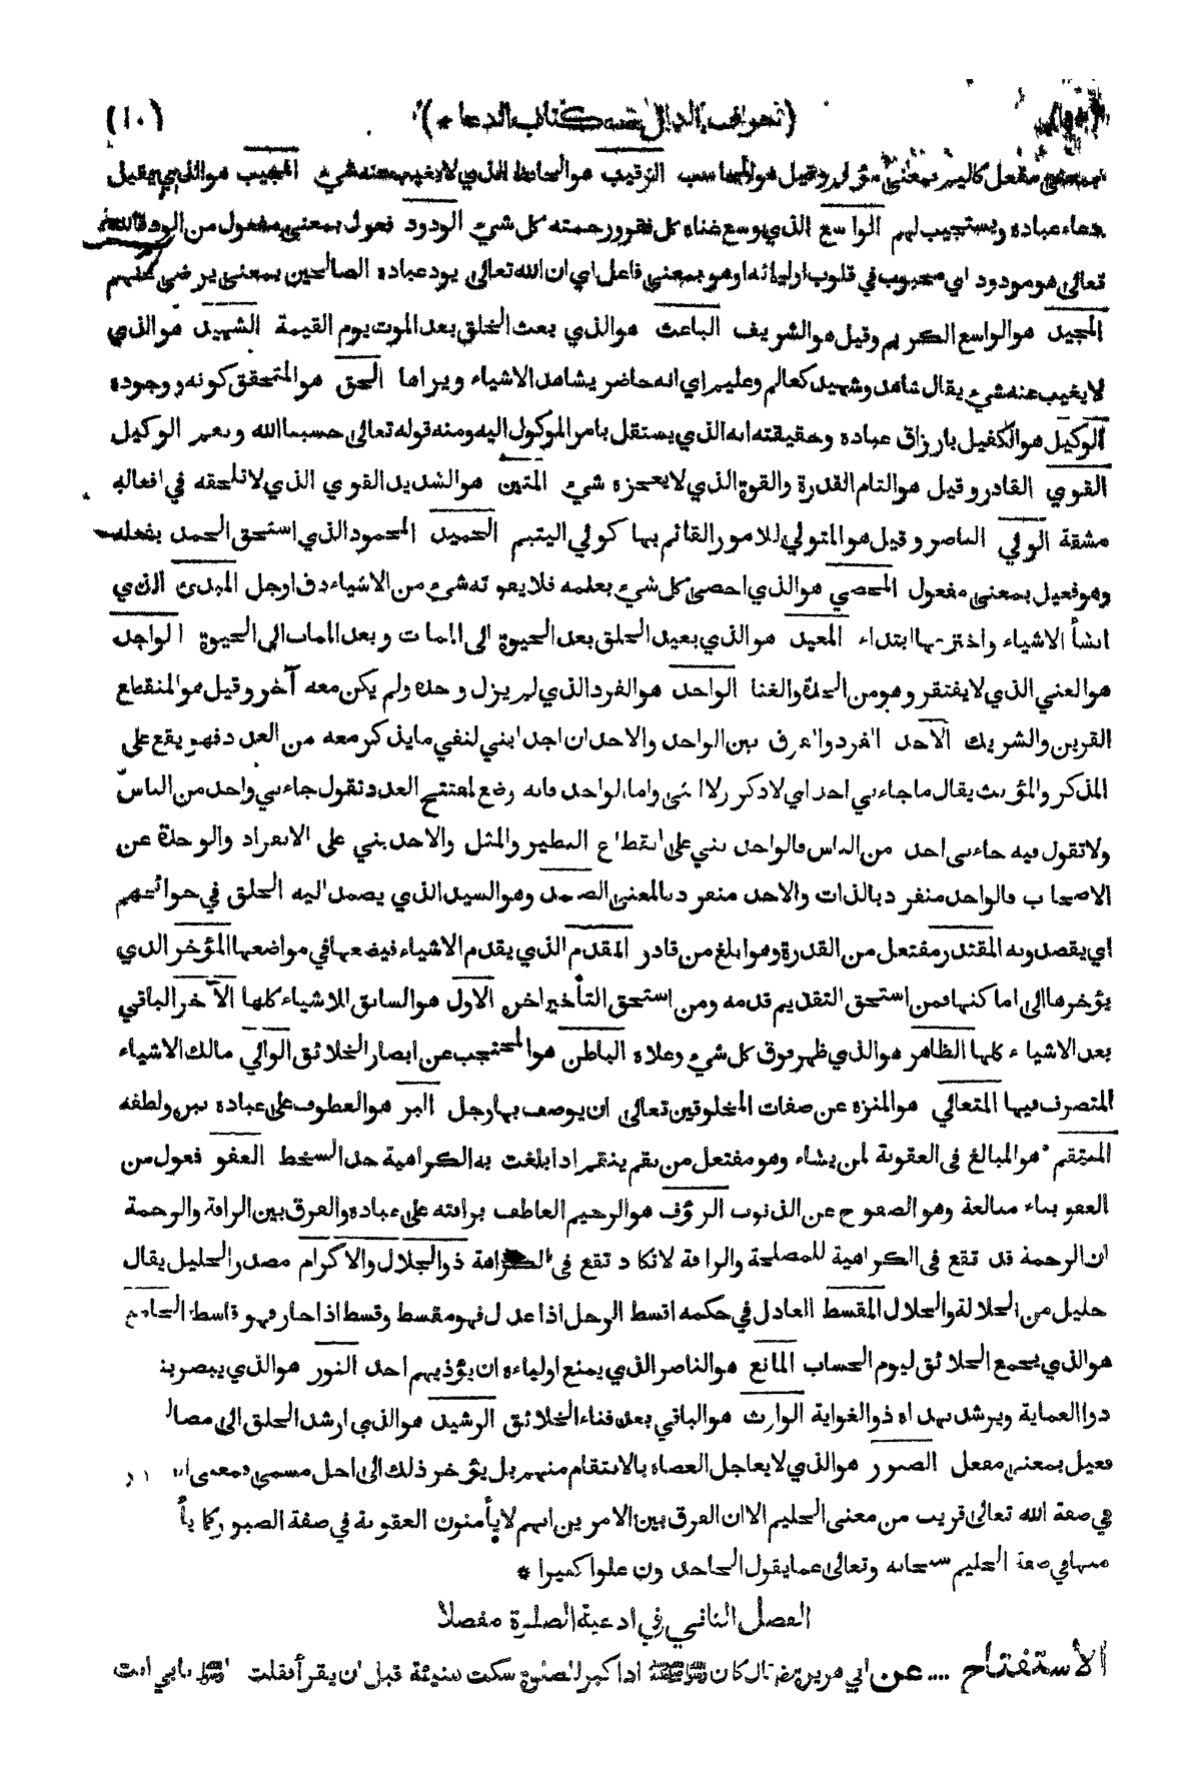 (١٠) كتاب الدعا *)
مفعل كاليم بمعنى مؤلم وقيل هو المحاسب الرقيب هو الحافظ الذي لا يغيب عنه شيء المجيب هو الذي يقبل
دعاء عباده ويستجيب لهم الواسع الذي وسع غناه كل فقر ورحمته كل شيء الودود فعول بمعنى مفعول من الود فالله
تعالى هو مودود اي محبوب في قلوب اوليائه او هو بمعنى فاعل اي ان الله تعالى يود عباده الصالحين بمعنى يرضى عنهم
المجيد هو الواسع الكريم وقيل هو الشريف الباعث هو الذي بعث الخلق بعد الموت يوم القيمة الشهيد هو الذي
لا يغيب عنه شيء يقال شاهد وشهيد كعالم وعليم اي انه حاضر يشاهد الاشياء ويراها الحق هو المتحقق كونه ووجوده
الوكيل هو الكفيل بارزاق عباده وحقيقته انه الذي يستقل بامر الموكول اليه ومنه قوله تعالى حسبنا الله ونعم الوكيل
القوي القادر وقيل هو التام القدرة والقوة الذي لا يعجزه شيء المتين هو الشديد القوي الذي لا تلحقه في افعاله
مشقة الولي الناصر وقيل هو المتولي للامور القائم بها كولي اليتيم الحميد المحمود الذي استحق الحمد بفعله
وهو فعيل بمعنى مفعول المحصي هو الذي احصى كل شيء بعلمه فلا يفوته شيء من الاشياء دق او جل المبدئ الذي
انشأ الاشياء واخترعها ابتداء المعيد هو الذي يعيد الخلق بعد الحيوة الى الممات وبعد الممات الى الحيوة الواجد
هو الغني الذي لا يفتقر وهو من الجدة والغنا الواحد هو الفرد الذي لم يزل وحده ولم يكن معه آخر وقيل هو المنقطع
القرين والشريك الاحد الفرد والفرق بين الواحد والاحد ان احدا بني لنفي ما يذكر معه من العدد فهو يقع على
المذكر والمؤنث يقال ما جاءني احد اي لا ذكر ولا انثى واما الواحد فانه وضع لمفتتح العدد تقول جاءني واحد من الناس
ولا تقول فيه جاءني احد من الناس فالواحد بني على انقطاع النظير والمثل والاحد بني على الانفراد والوحدة عن
الاصحاب فالواحد منفرد بالذات والاحد منفرد بالمعنى الصمد وهو السيد الذي يصمد اليه الخلق في حوائجهم
اي يقصدونه المقتدر مفتعل من القدرة وهو ابلغ من قادر المقدم الذي يقدم الاشياء فيضعها في مواضعها المؤخر الذي
يؤخرها الى اماكنها فمن استحق التقديم قدمه ومن استحق التأخير اخره الاول هو السابق للاشياء كلها الآخر الباقي
بعد الاشياء كلها الظاهر هو الذي ظهر فوق كل شيء وعلاه الباطن هو المحتجب عن ابصار الخلائق الوالي مالك الاشياء
المتصرف فيها المتعالي هو المنزه عن صفات المخلوقين تعالى ان يوصف بها وجل البر هو العطوف على عباده ببره ولطفه
المنتقم هو المبالغ في العقوبة لمن يشاء وهو مفتعل من نقم ينقم اذا بلغت به الكراهية حد السخط العفو فعول من
العفو بناء مبالغة وهو الصفوح عن الذنوب الرؤف هو الرحيم العاطف برافته على عباده والفرق بين الرافة والرحمة
ان الرحمة قد تقع في الكراهية للمصلحة والرافة لا تكاد تقع في الكراهة ذو الجلال والاكرام مصدر الجليل يقال
جليل من الجلالة والجلال المقسط العادل في حكمه اقسط الرجل اذا عدل فهو مقسط وقسط اذا جار فهو قاسط الجامع
هو الذي يجمع الخلائق ليوم الحساب المانع هو الناصر الذي يمنع اولياءه ان يؤذيهم احد النور هو الذي يبصر بنـ
ذوا العماية ويرشد بهداه ذو الغواية الوارث هو الباقي بعد فناء الخلائق الرشيد هو الذي ارشد الخلق الى مصالـ
فعيل بمعنى مفعل الصبور هو الذي لا يعاجل العصاة بالانتقام منهم بل يؤخر ذلك الى اجل مسمى فمعنى
في صفة الله تعالى قريب من معنى الحليم الا ان الفرق بين الامرين انهم لا يأمنون العقوبة في صفة الصبور كما يأ
منها في صفة الحليم سبحانه وتعالى عما يقول الجاحدون علوا كبيرا *
الفصل الثاني في ادعية الصلوة مفصلا
الاستفتاح .... عن ابي هريرة قال كان ﷺ اذا كبر للصلوة سكت هنيئة قبل ان يقرأ فقلت بابي انت